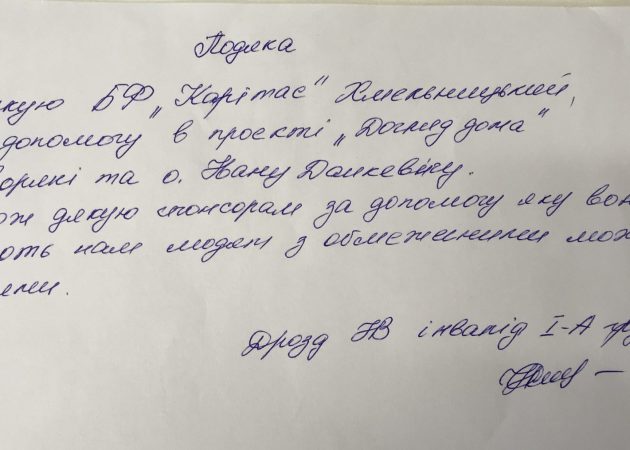 Подяка
кую БФ „Карітас" Хмельницький,
допомогу в проєкті „Догляд дома"
та о. Івану
ож дякую спонсорам за допомогу яку вон
ють нам людям з обмеженими мож
ями.
Дрозд НВ інвалід І-А гр